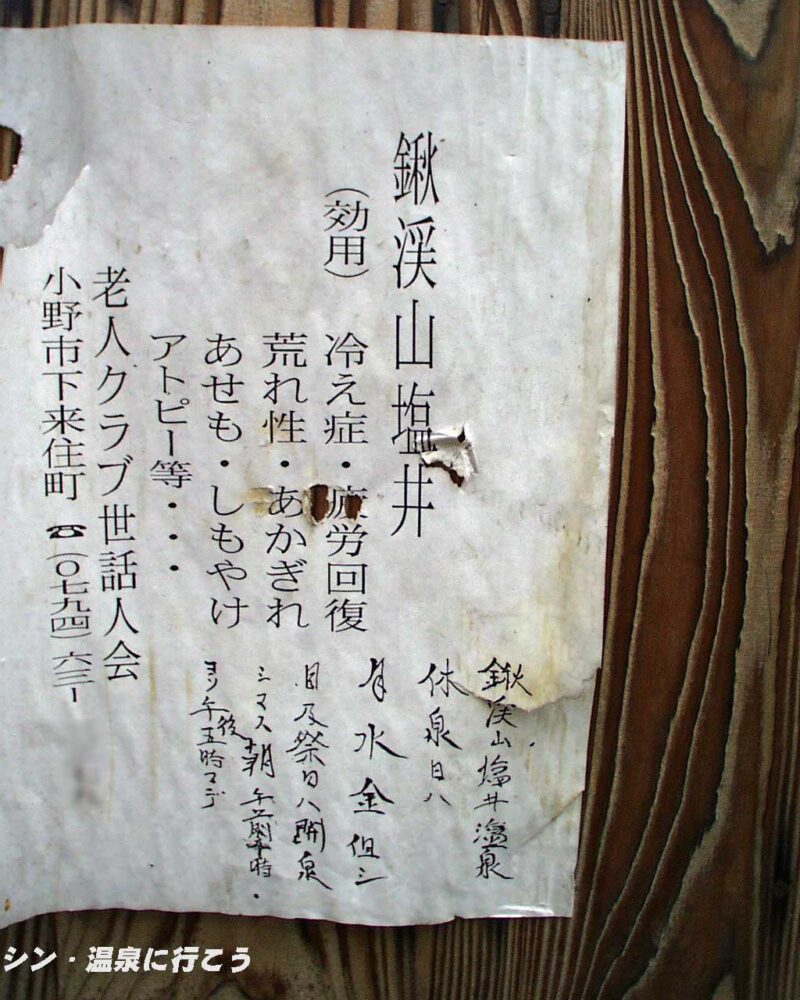 鍬渓山塩井
(効用) 冷え症・疲労回復
荒れ性・あかぎれ
あせも・しもやけ
アトピー等・・・
老人クラブ世話人会
小野市下来住町 ☎(〇七九四)六三ー
鍬渓山塩井温泉
休泉日ハ
月水金但シ
日及祭日ハ開泉
シマス 午前 時
ヨリ午後五時マデ
シン・温泉に行こう